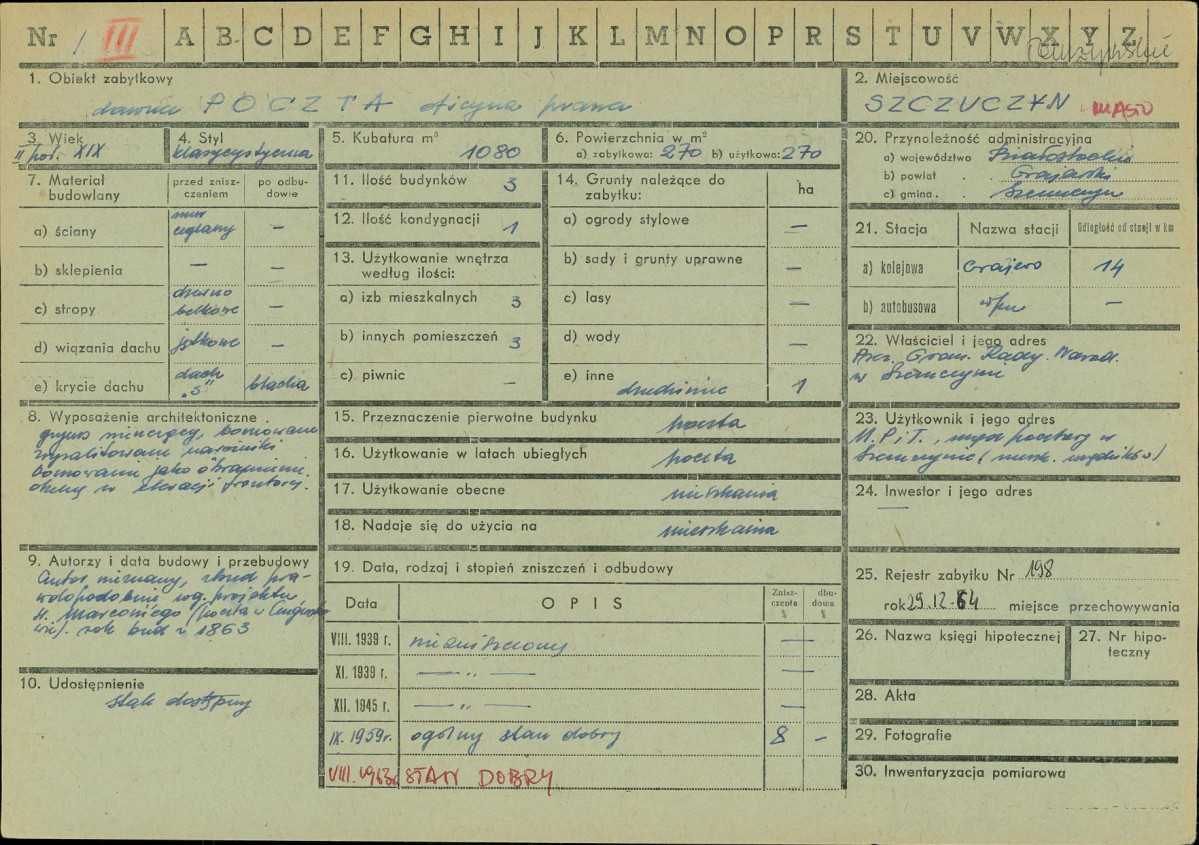 Nr 1 III A B C D E F G H I J K L M N O P R S T U V W X Y Z
1. Obiekt zabytkowy
dawna POCZTA oficyna prawa
2. Miejscowość
SZCZUCZYN MIASTO
3. Wiek
II poł. XIX
4. Styl
klasycystyczna
5. Kubatura m³
1080
6. Powierzchnia w m²
a) zabytkowa: 270 b) użytkowa: 270
20. Przynoleżność administracyjna
a) województwo Białostockie
b) powiat . Grajewski
c) gmina . Szczuczyn
7. Materiał budowlany
przed znisz-
czeniem
po odbu-
dowie
a) ściany mur ceglany —
b) sklepienia — —
c) stropy drewno belkowe —
d) wiązania dachu jętkowe —
e) krycie dachu dach „S" blacha
8. Wyposażenie architektoniczne
gzyms wieńczący, boniowane
narożniki
boniowanie jako obramienie
okien w elewacji frontowej.
9. Autorzy i data budowy i przebudowy
Autor nieznany, zbud. pra-
wdopodobnie wg. projektu
H. Marconi'ego (poczta w Augusto-
wie). rok bud. 1863
10. Udostępnienie
stale dostępny
11. Ilość budynków 3
12. Ilość kondygnacji 1
13. Użytkowanie wnętrza
według ilości:
a) izb mieszkalnych 3
b) innych pomieszczeń 3
c) piwnic —
14. Grunty należące do
zabytku:
ha
a) ogrody stylowe —
b) sady i grunty uprawne —
c) lasy —
d) wody —
e) inne
dziedziniec 1
15. Przeznaczenie pierwotne budynku poczta
16. Użytkowanie w latach ubiegłych poczta
17. Użytkowanie obecne mieszkania
18. Nadaje się do użycia na mieszkania
19. Data, rodzaj i stopień zniszczeń i odbudowy
Data OPIS Znisz-
czenie
%
dbu-
dowa
%
VIII. 1939 r. niezniszczony —
XI. 1939 r. — „ — —
XII. 1945 r. — „ — —
IX. 1959 r. ogólny stan dobry 8 -
VIII. 1963 r. STAN DOBRY
21. Stacja Nazwa stacji Odległość od stacji w km
a) kolejowa Grajewo 14
b) autobusowa —
22. Właściciel i jego adres
Prez. Grom. Rady. Narod.
w Szczuczynie
23. Użytkownik i jego adres
M.P.iT., urząd pocztowy w
Szczuczynie (mieszk. urzędników)
24. Inwestor i jego adres
—
25. Rejestr zabytku Nr 198
rok 29.12.64 miejsce przechowywania
26. Nazwa księgi hipotecznej
27. Nr hipo-
teczny
28. Akta
29. Fotografie
30. Inwentaryzacja pomiarowa